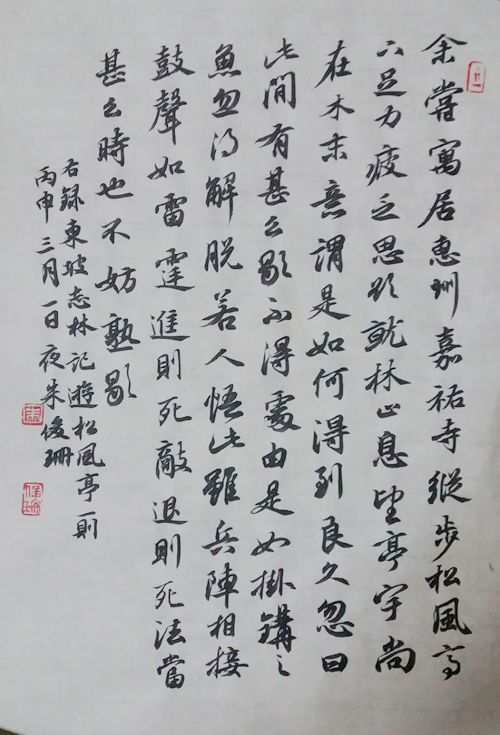 余嘗寓居惠州嘉祐寺縱步松風亭
下足力疲乏思欲就林止息望亭宇尚
在木末意謂是如何得到良久忽曰
此間有甚么歇不得處由是如掛鈎之
魚忽得解脫若人悟此雖兵陣相接
鼓聲如雷霆進則死敵退則死法當
甚么時也不妨熟歇
右録東坡志林記遊松風亭一則
丙申三月一日夜朱俊珊